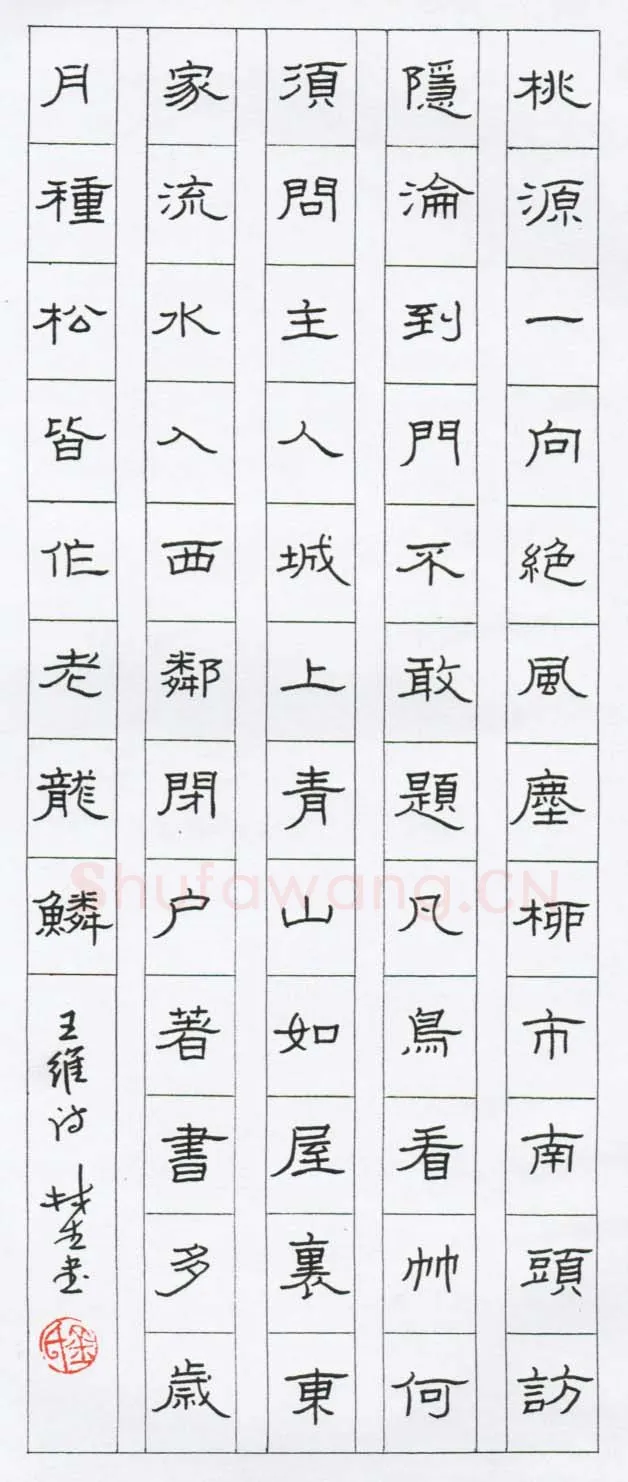 桃源一向絶風塵桺市南頭訪
隱淪到門不敢題凡鳥看竹何
須問主人城上青山如屋裏東
家流水入西鄰閉户著書多歲
月種松皆作老龍鱗
王維詩
書
Shufawang.CN